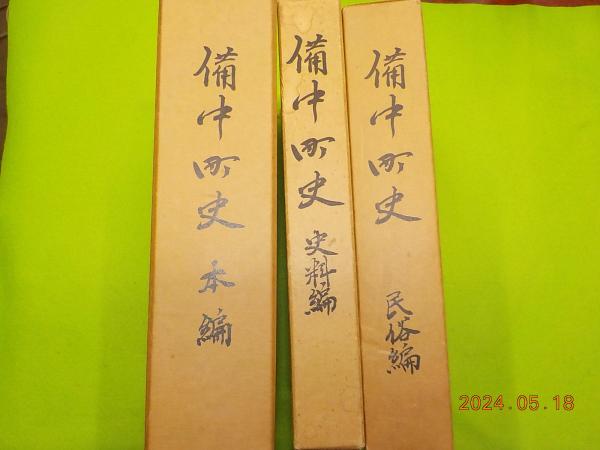 備中町史 本編
備中町史 史料編
備中町史 民俗編
2024.05.18